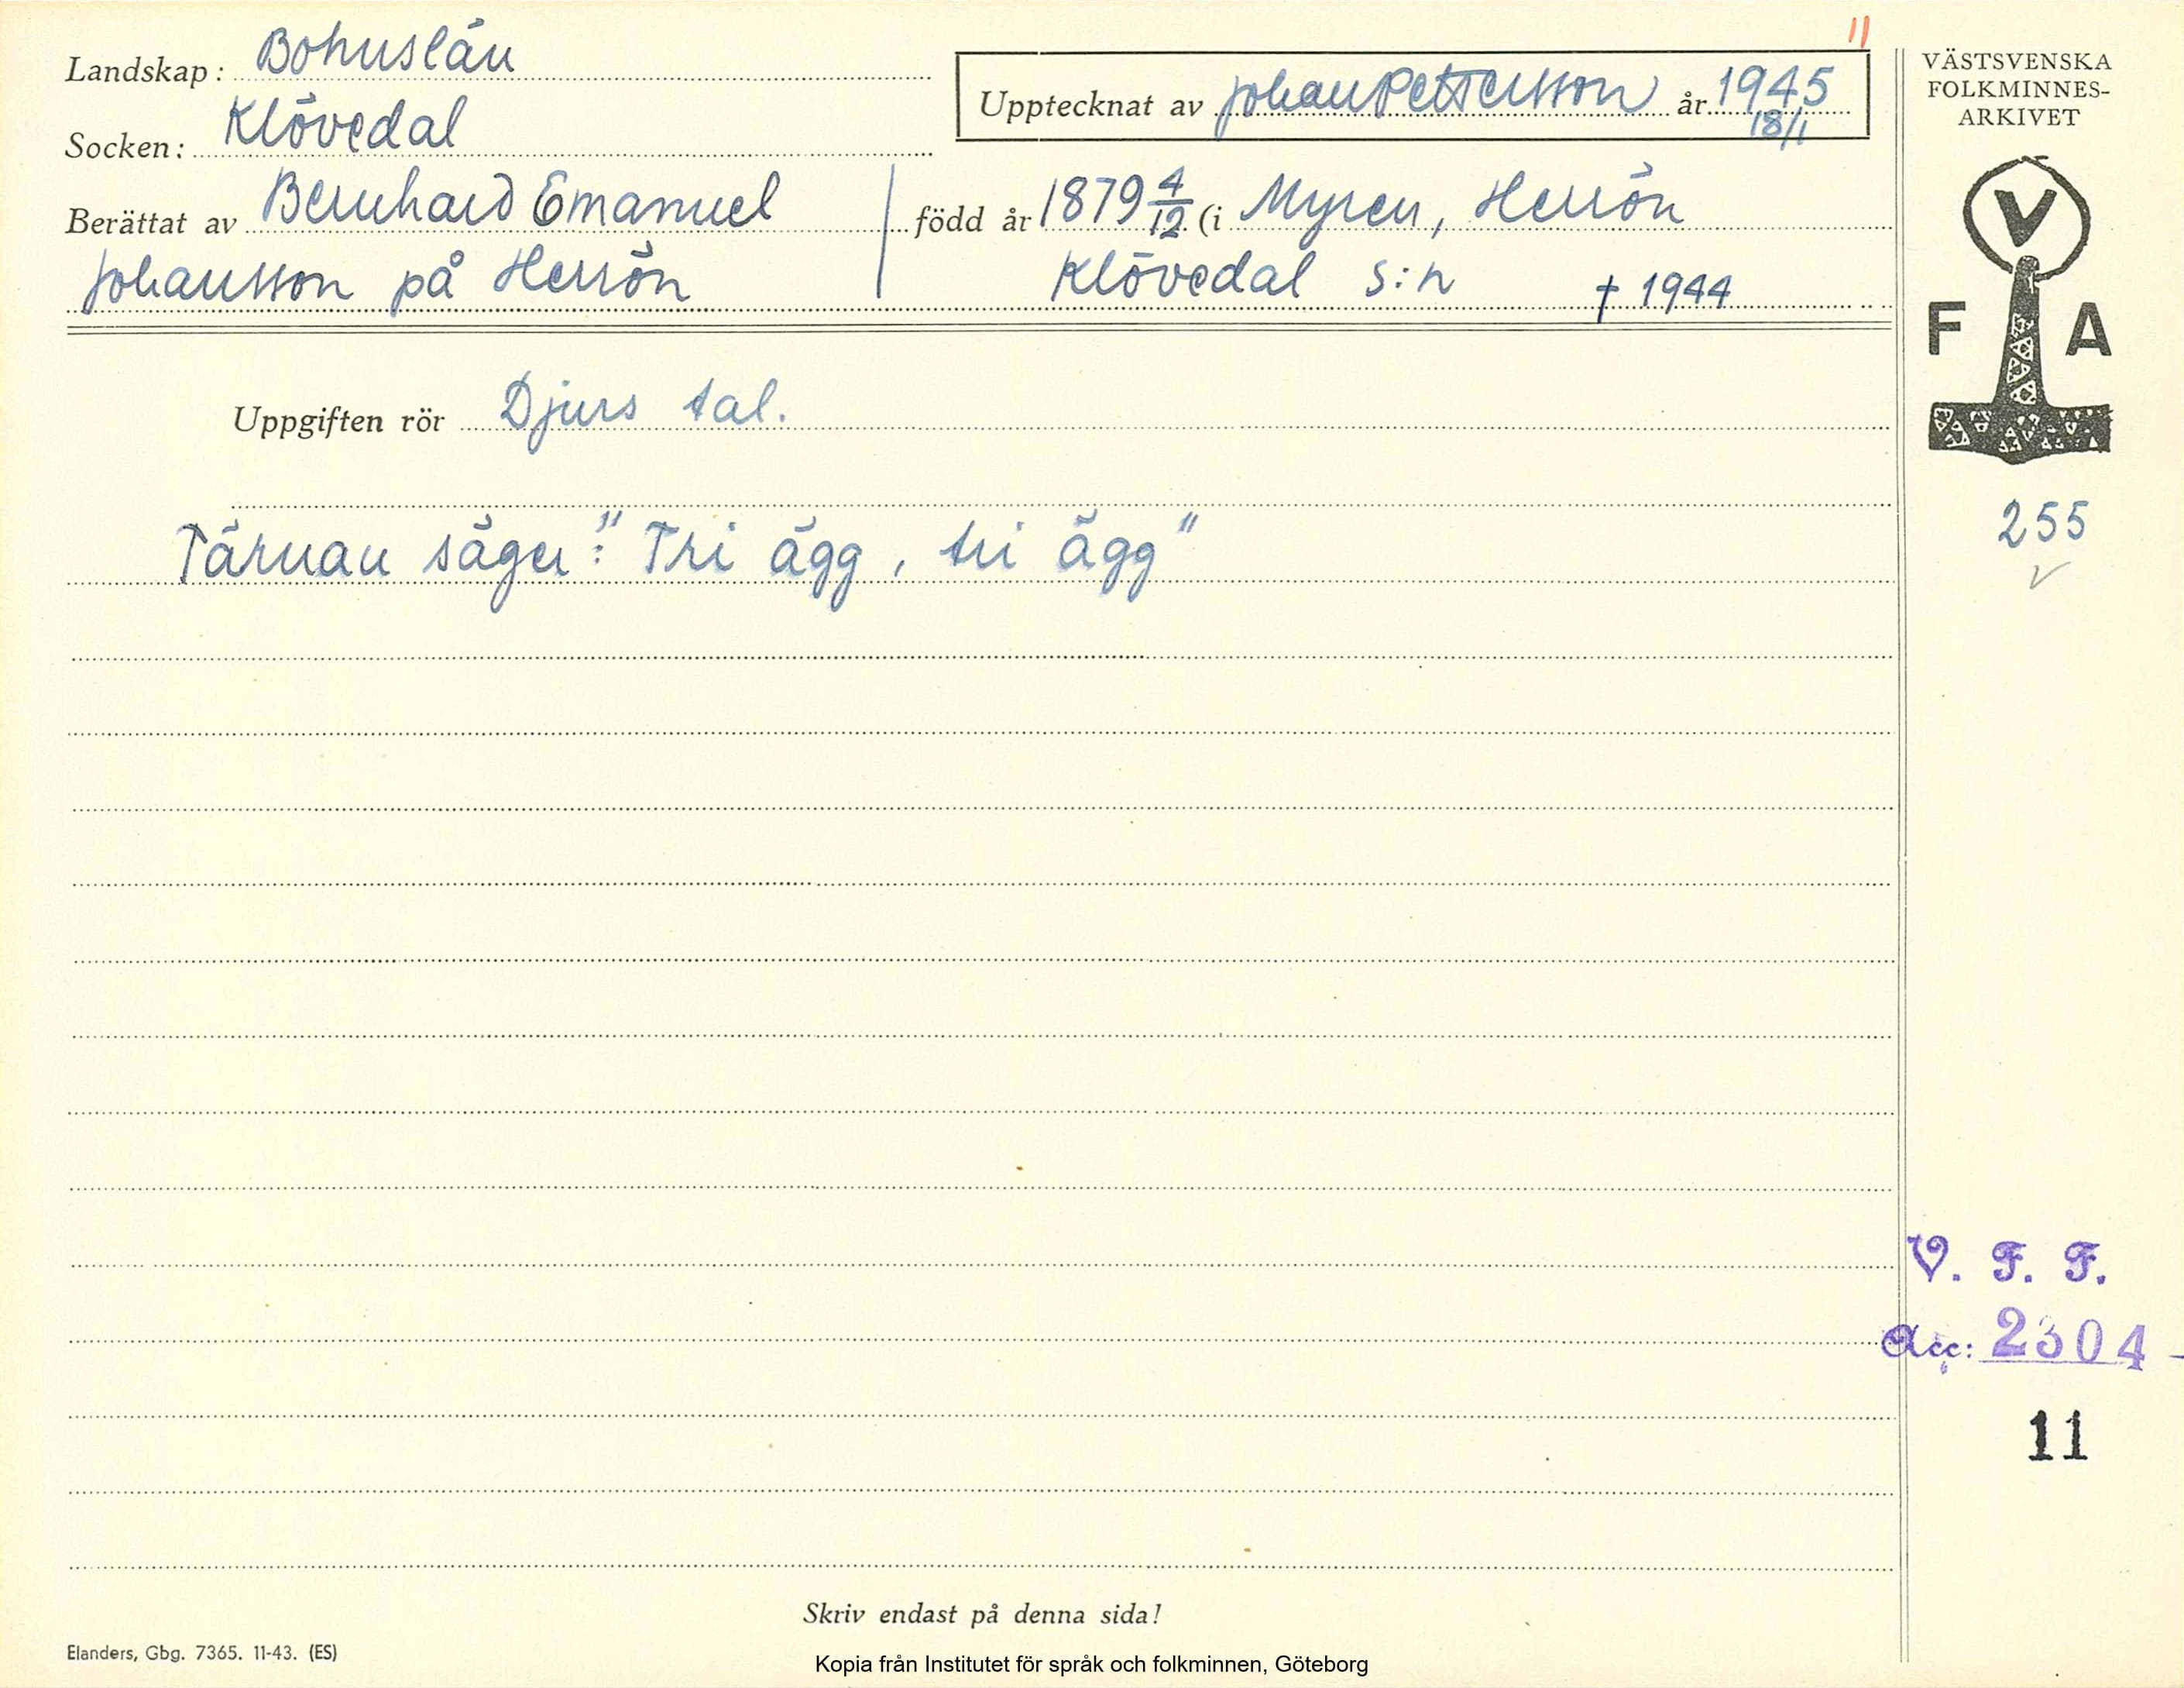 Landskap: Bohuslän
Socken: Klövedal
Upptecknat av Johan Pettersson år 1945
18/1
11
Berättat av Bernhard Emanuel
Johansson på Herrön
född år 1879 4/12 (i Myren, Herrön
Klövedal s:n † 1944
Uppgiften rör Djurs tal.
Tärnan säger: "Tri ägg, tri ägg"
VÄSTSVENSKA
FOLKMINNES-
ARKIVET
V
F A
255
V. F. F.
Acc: 2304
11
Skriv endast på denna sida!
Elanders, Gbg. 7365. 11-43. (ES)
Kopia från Institutet för språk och folkminnen, Göteborg